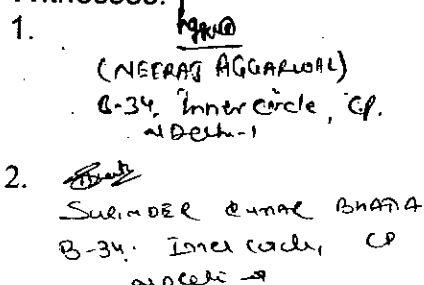 Witnesses:
1.
(NEERAJ AGGARWAL)
B-34, Inner Circle, CP.
N Delhi-1
2.
SURINDER KUMAR BHATIA
B-34. Inner circle, CP
N Delhi -1